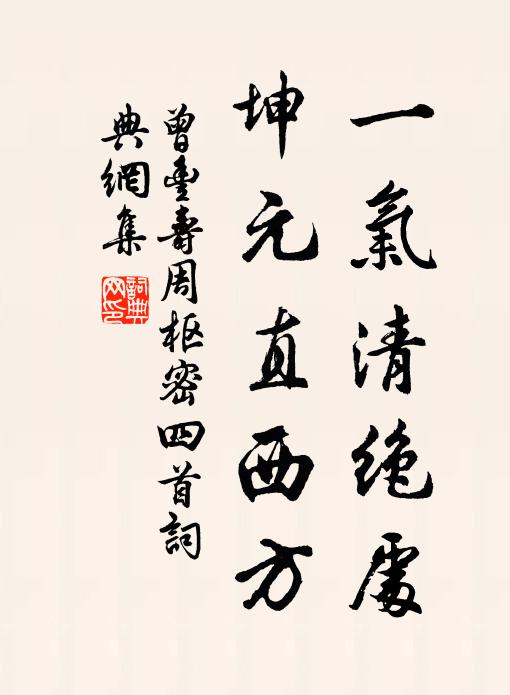 一氣清絶處
坤元直西方
曾豐壽周枢密四首詞
典網集
詞典
网印